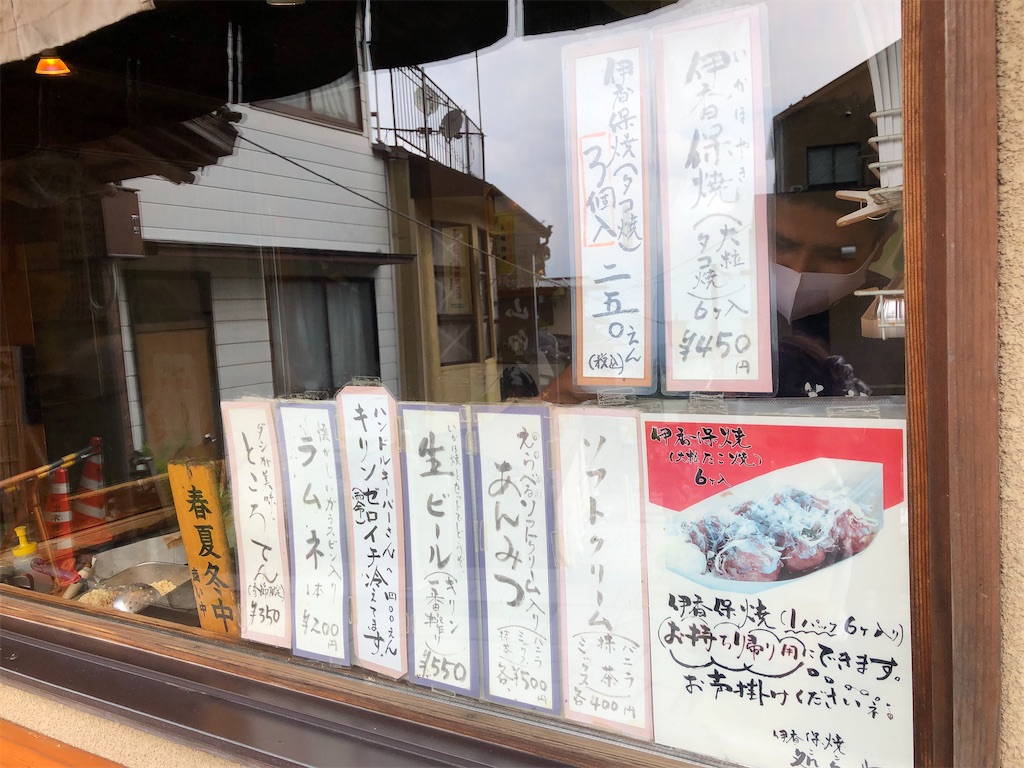 いかほやき
伊香保焼(大粒入
タコ焼)6ヶ入
¥450円
伊香保焼(タコ焼)
3個入
二五〇えん
(税込)
伊香保焼
(大粒たこ焼)
6ヶ入
伊香保焼(1パック6ヶ入り)
お持ち帰り用にできます。
お声掛けくださいネ。
伊香保焼
ソフトクリーム
バニラ
抹茶
ミックス
各400円
えらべるソフトクリーム入り
あんみつ
バニラ
抹茶
ミックス
各¥500円
生ビール
(キリン
一番搾り)
¥550
ハンドルキーパーさんへ
400えん
キリンゼロイチ冷えてます。
懐かしい
ガラスビン入り
ラムネ
1本
¥200円
ところてん
(季節限定)
¥350
春夏冬中